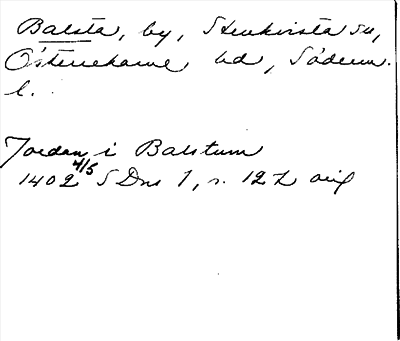 Balsta, by, Stenkvista sn,
Österrekarne hd, Söderm.
l.
Jordan i Balstum
1402 4/5 SDns 1, n. 127 orig